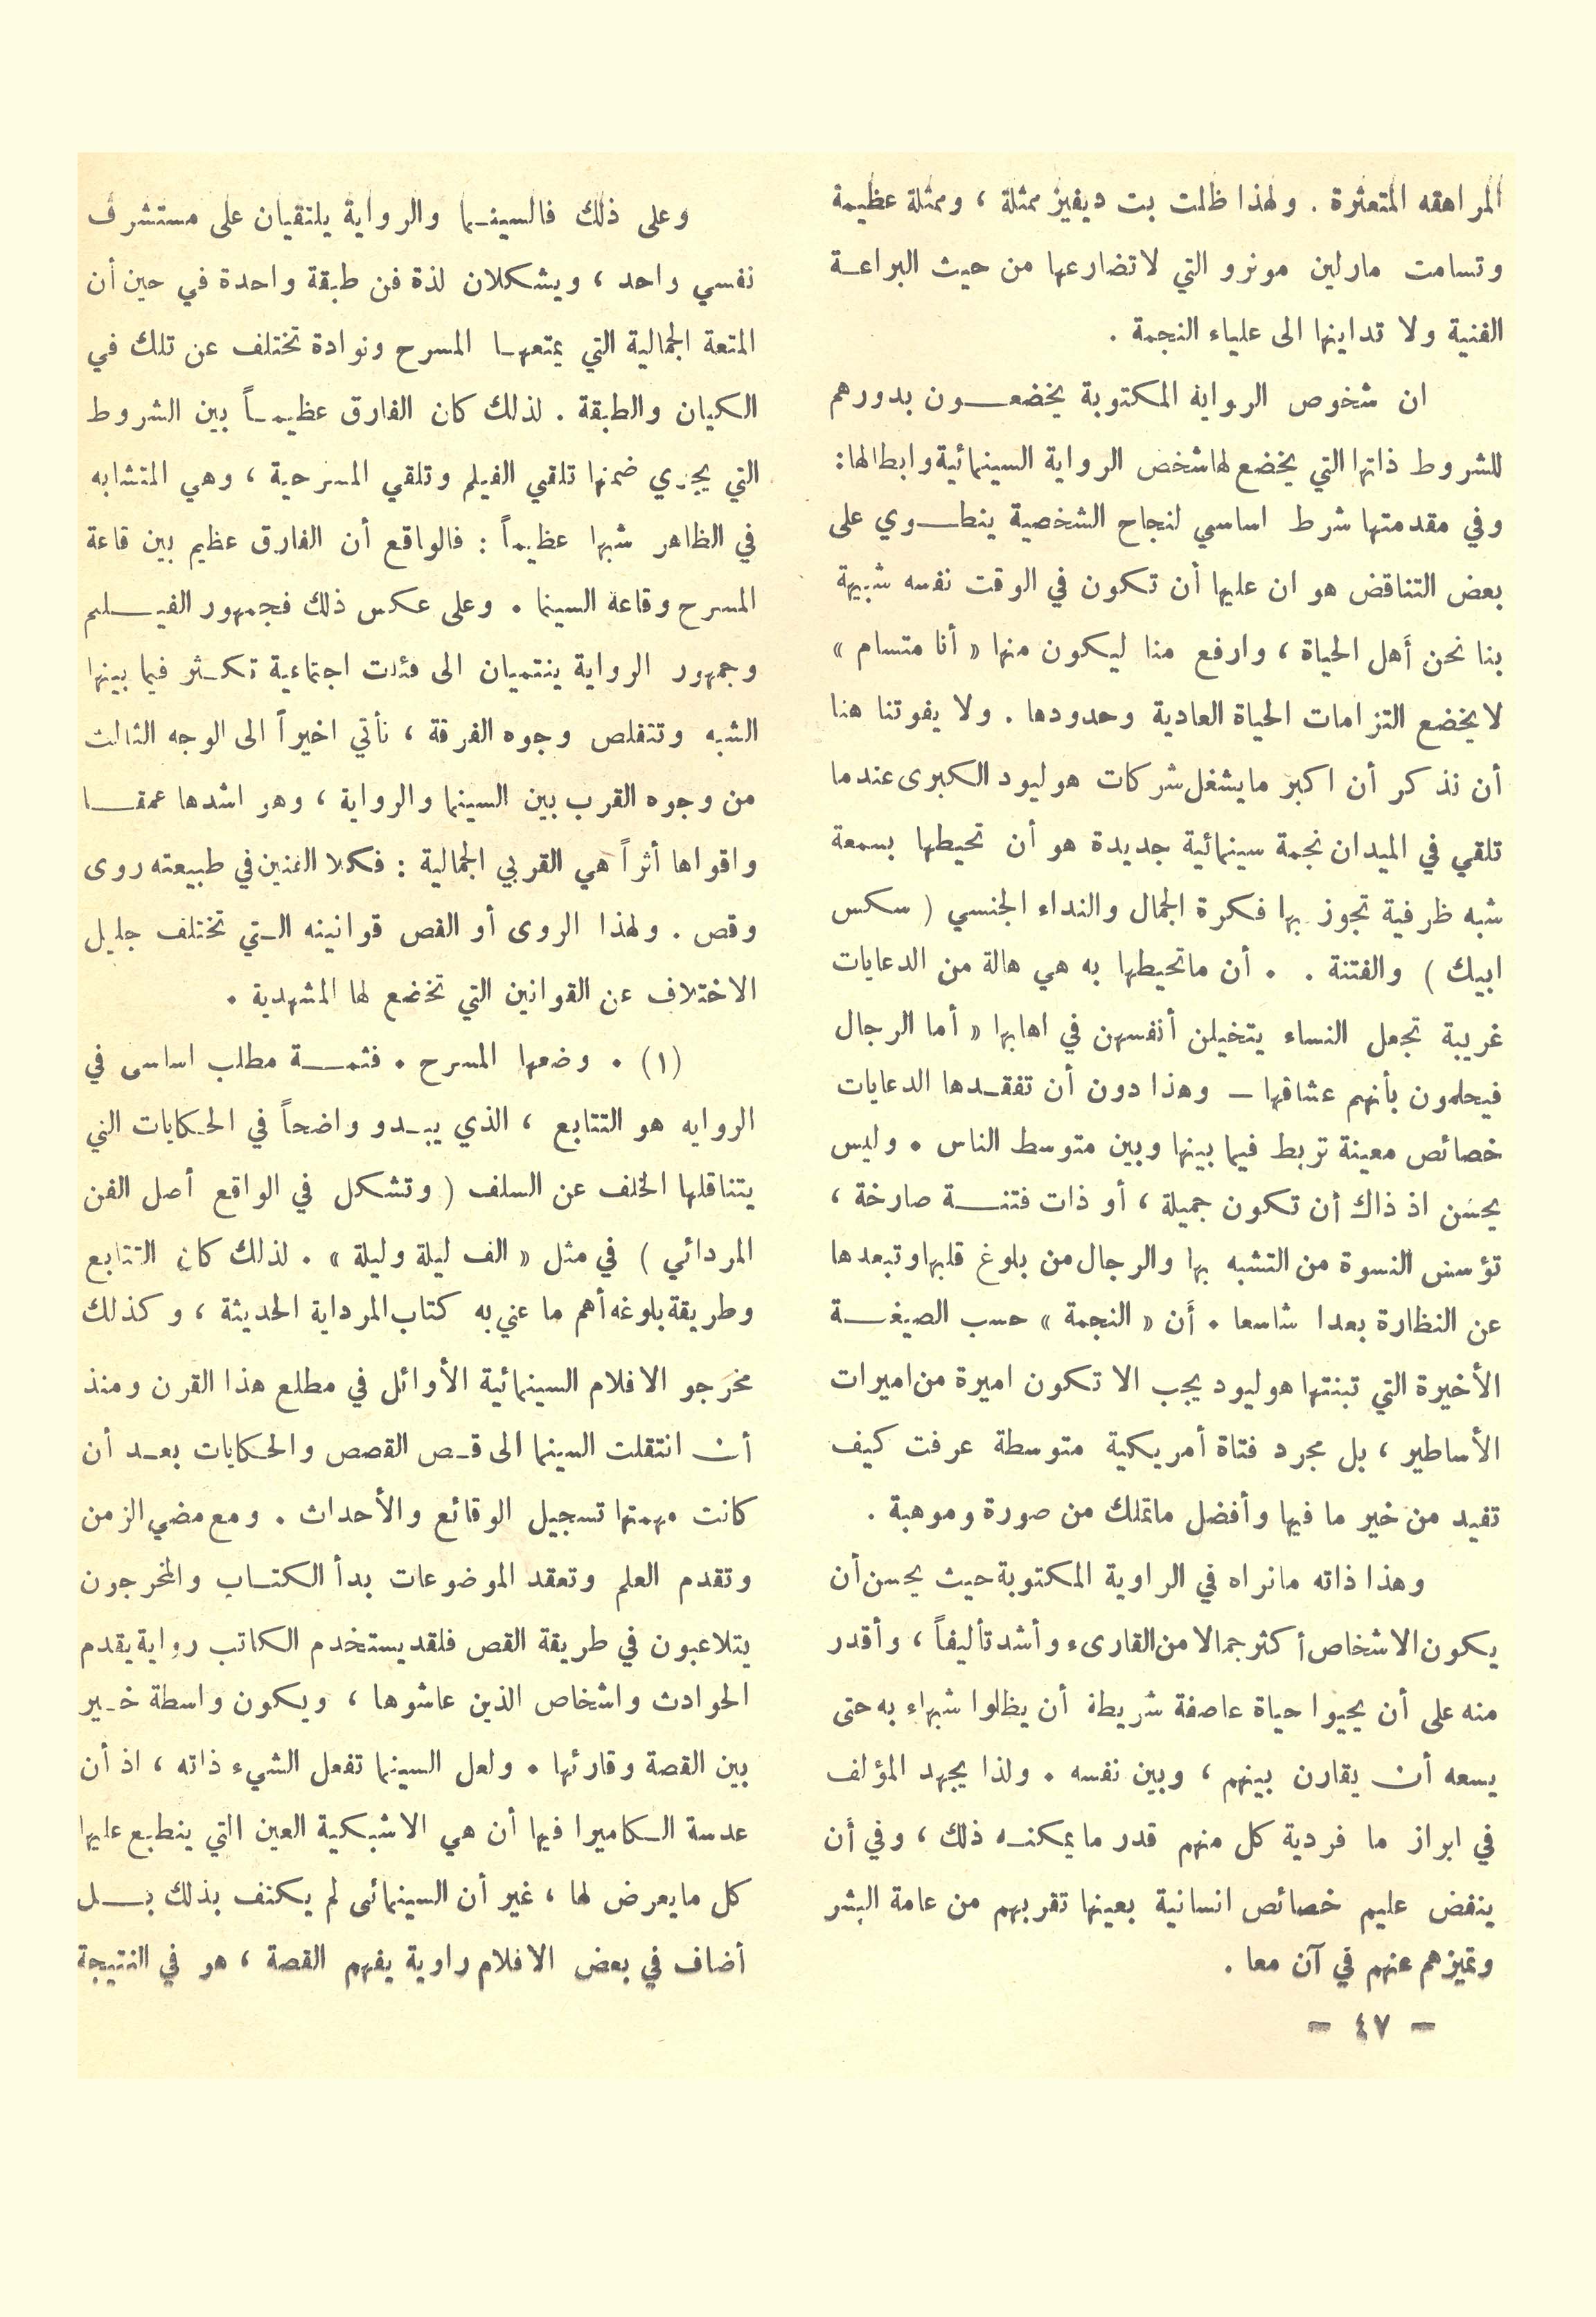 المراهقه المتعثرة . ولهذا ظلت بت ديفيز ممثلة ، وممثلة عظيمة
وتسامت مارلين مونرو التي لاتضارعها من حيث البراعة
الفنية ولا تداينها الى علياء النجمة .
ان شخوص الرواية المكتوبة يخضعون بدورهم
للشروط ذاتها التي يخضع لها شخص الرواية السينمائية وابطالها :
وفي مقدمتها شرط اساسي لنجاح الشخصية ينطوي على
بعض التناقض هو ان عليها أن تكون في الوقت نفسه شبيهة
بنا نحن أهل الحياة ، وارفع منا ليكون منها « أنا متسام »
لايخضع التزامات الحياة العادية وحدودها . ولا يفوتنا هنا
أن نذكر أن اكبر مايشغل شركات هوليود الكبرى عندما
تلقي في الميدان نجمة سينمائية جديدة هو أن تحيطها بسمعة
شبه ظرفية تجوز بها فكرة الجمال والنداء الجنسي ( سكس
ابيك ) والفتنة . . أن ماتحيطها به هي هالة من الدعايات
غريبة تجعل النساء يتخيلن أنفسهن في اهابها « أما الرجال
فيحلمون بأنهم عشاقها – وهذا دون أن تفقدها الدعايات
خصائص معينة تربط فيما بينها وبين متوسط الناس . وليس
يحسن اذ ذاك أن تكون جميلة ، أو ذات فتنة صارخة ،
تؤسس النسوة من التشبه بها والرجال من بلوغ قلبها وتبعدها
عن النظارة بعدا شاسعا . أن « النجمة » حسب الصيغة
الأخيرة التي تبنتها هوليود يجب الا تكون اميرة من اميرات
الأساطير ، بل مجرد فتاة أمريكية متوسطة عرفت كيف
تفيد من خير ما فيها وأفضل ماتملك من صورة وموهبة .
وهذا ذاته مانراه في الراوية المكتوبة حيث يحسن أن
يكون الاشخاص أكثر جمالا من القارىء وأشد تأليفاً ، وأقدر
منه على أن يحيوا حياة عاصفة شريطة أن يظلوا شبهاء به حتى
يسعه أن يقارن بينهم ، وبين نفسه . ولذا يجهد المؤلف
في ابراز ما فردية كل منهم قدر مايمكنه ذلك ، وفي أن
ينفض عليم خصائص انسانية بعينها تقربهم من عامة البشر
وتميزهم عنهم في آن معا .
وعلى ذلك فالسينما والرواية يلتقيان على مستشرف
نفسي واحد ، ويشكلان لذة فن طبقة واحدة في حين أن
المتعة الجمالية التي يمتعها المسرح ونوادة تختلف عن تلك في
الكيان والطبقة . لذلك كان الفارق عظيماً بين الشروط
التي يجري ضمنها تلقي الفيلم وتلقي المسرحية ، وهي المتشابه
في الظاهر شبها عظيماً : فالواقع أن الفارق عظيم بين قاعة
المسرح وقاعة السينما . وعلى عكس ذلك فجمهور الفيلم
وجمهور الرواية ينتميان الى فئات اجتماعية تكثر فيما بينها
الشبه وتتقلص وجوه الفرقة ، نأتي اخيراً الى الوجه الثالث
من وجوه القرب بين السينما والرواية ، وهو اشدها عمقا
واقواها أثراً هي القربي الجمالية : فكلا الفنين في طبيعته روى
وقص . ولهذا الروى أو القص قوانينه التي تختلف جليل
الاختلاف عن القوانين التي تخضع لها المشهدية .
(١) . وضعها المسرح . فثمة مطلب اساسى في
الروايه هو التتابع ، الذي يبدو واضحاً في الحكايات التي
يتناقلها الخلف عن السلف ( وتشكل في الواقع أصل الفن
المردائي ) في مثل « الف ليلة وليلة » . لذلك كان التتابع
وطريقة بلوغه أهم ما عني به كتاب المرداية الحديثة ، وكذلك
مخرجو الافلام السينمائية الأوائل في مطلع هذا القرن ومنذ
أن انتقلت السينما الى قص القصص والحكايات بعد أن
كانت مهمتها تسجيل الوقائع والأحداث . ومع مضي الزمن
وتقدم العلم وتعقد الموضوعات بدأ الكتاب والمخرجون
يتلاعبون في طريقة القص فلقد يستخدم الكاتب رواية يقدم
الحوادث واشخاص الذين عاشوها ، ويكون واسطة خير
بين القصة وقارئها . ولعل السينما تفعل الشيء ذاته ، اذ أن
عدسة الكاميرا فيها أن هي الاشبكية العين التي ينطبع عليها
كل مايعرض لها ، غير أن السينمائى لم يكتف بذلك بل
أضاف في بعض الافلام راوية يفهم القصة ، هو في النتيجة
– ٤٧ –